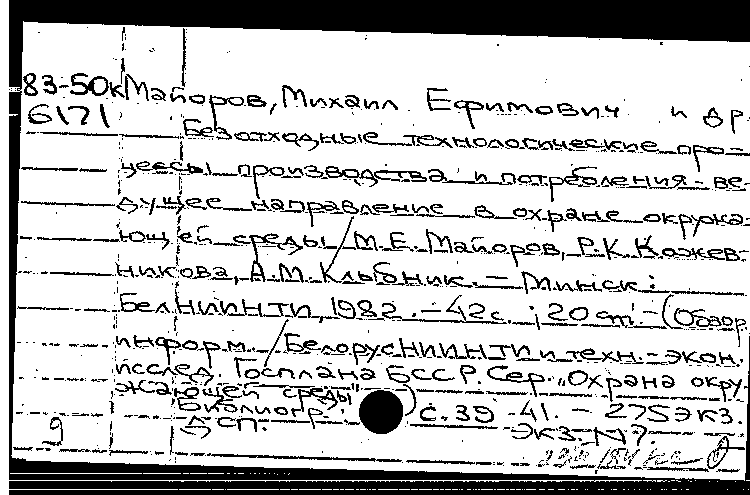 83-50к Майоров, Михаил Ефимович и др
6171
Безотходные технологические про-
цессы производства и потребления - ве-
дущее направление в охране окружа-
ющей среды / М.Е. Майоров, Р.К. Кожев-
никова, А.М. Клыбник. - Минск:
БелНИИНТИ, 1982. - 42 с. ; 20 см. - (Обзор.
информ. / БелорусНИИНТИ и техн.-экон.
исслед. Госплана БССР. Сер. "Охрана окру
жающей среды")
Библиогр.: с. 39-41. - 275 экз.
ДСП. Экз. N 7.
9